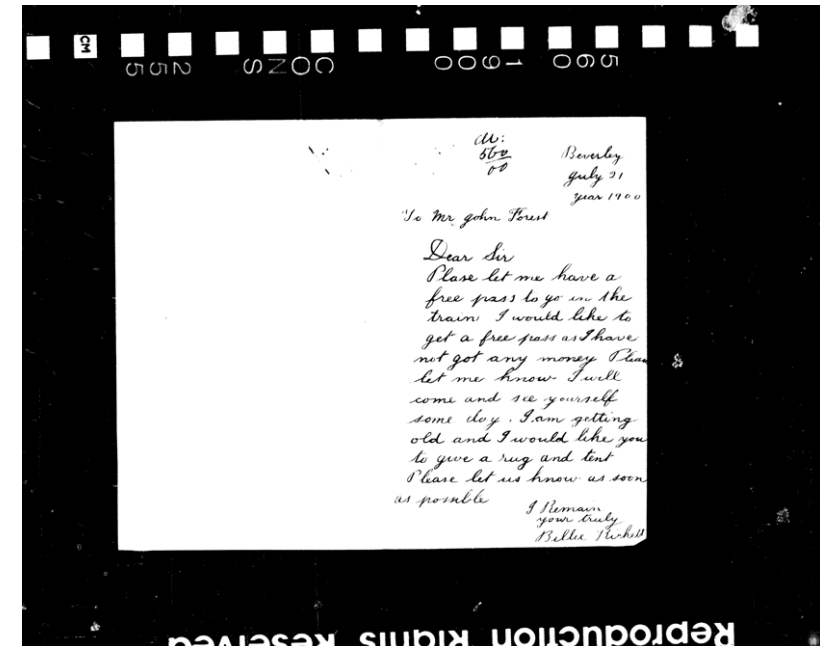 CM
525 CONS 1900 560
au:
560
00
Beverley
July 21
year 1900
To Mr John Forest
Dear Sir
Plase let me have a
free pass to go in the
train I would like to
get a free pass as I have
not got any money Pleas
let me know I will
come and see yourself
some day. I am getting
old and I would like you
to give a rug and tent
Please let us know as soon
as possible
I Remain
your truly
Billee
Reproduction Rights Reserved